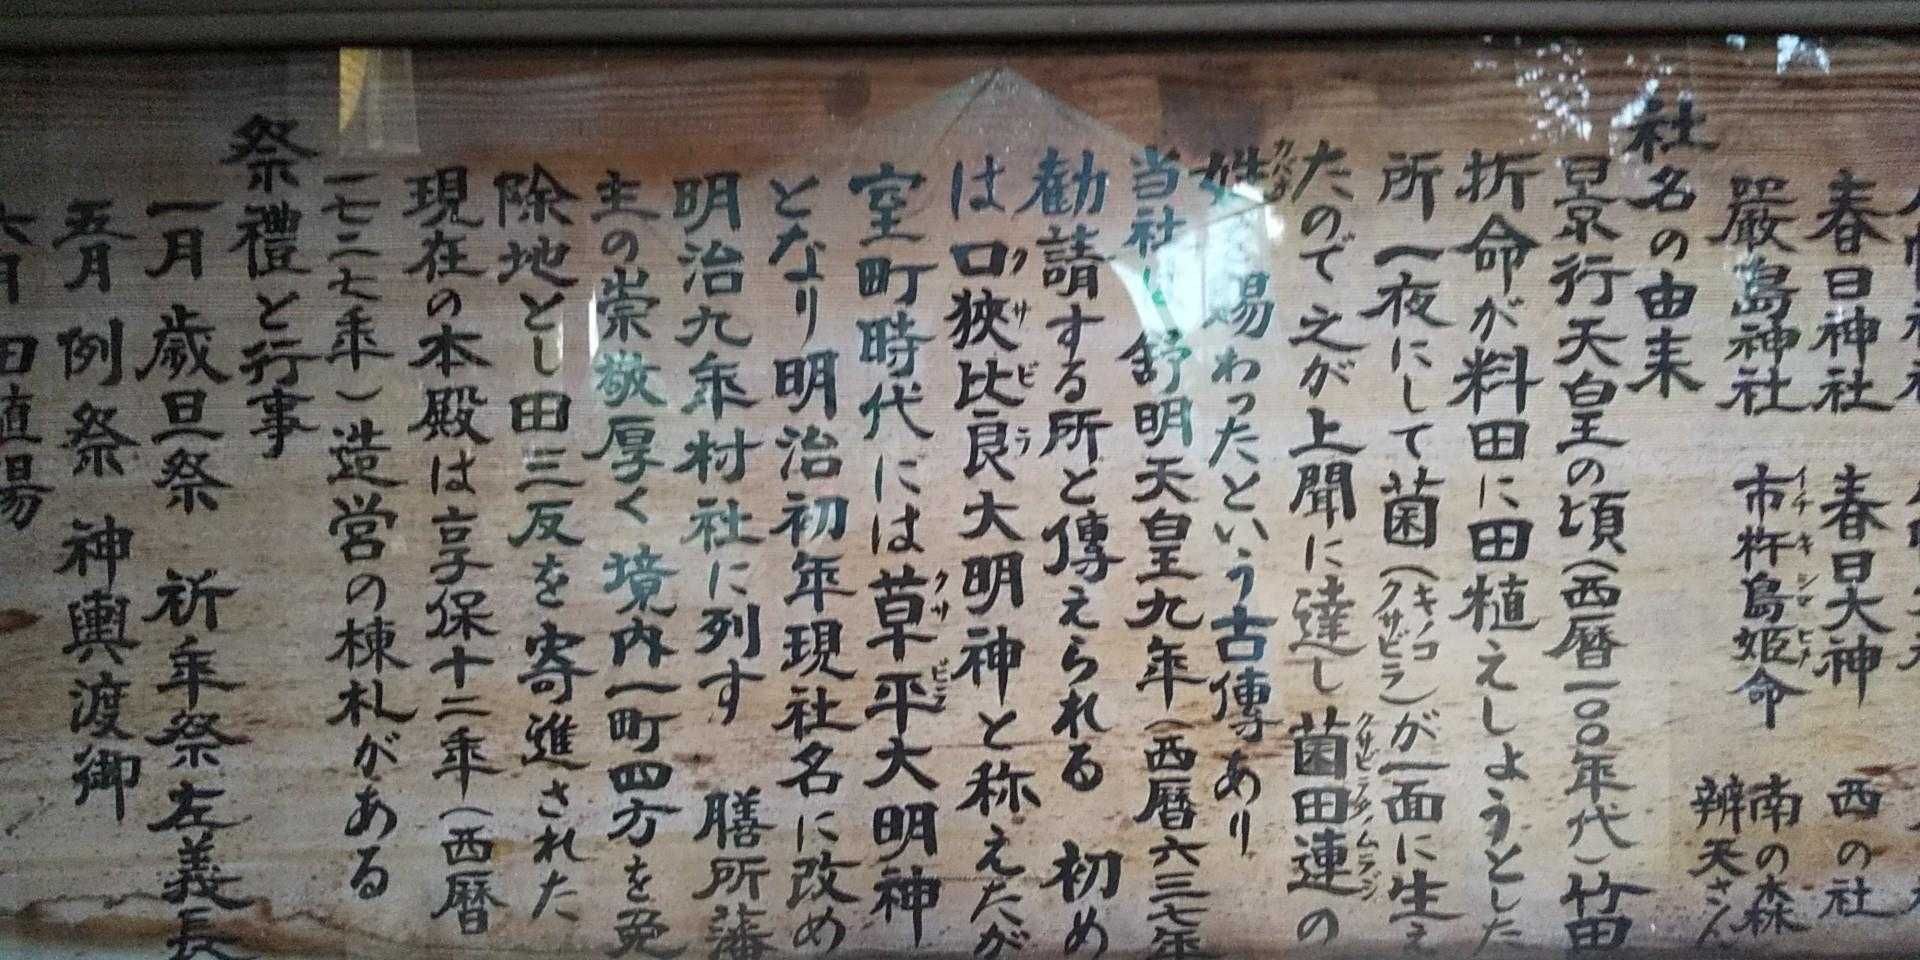 春日神社 春日大神 西の社
厳島神社 市杵島姫命 南の森
イチキシマヒメ
辨天さん
社名の由来
景行天皇の頃(西暦一〇〇年代)竹田
折命が料田に田植えしようとした
所一夜にして菌(キノコ クサビラ)が一面に生え
たので之が上聞に達し菌田連の
クサビラタノムラジ
姓を賜わったという古傳あり
カバネ
当社は舒明天皇九年(西暦六三七年
勧請する所と傳えられる 初め
は口狹比良大明神と称えたが
クサビラ
室町時代には草平大明神
クサビラ
となり明治初年現社名に改め
明治九年村社に列す 膳所藩
主の崇敬厚く境内一町四方を免
除地とし田三反を寄進された
現在の本殿は享保十二年(西暦
一七二七年)造営の棟札がある
祭禮と行事
一月 歳旦祭 祈年祭左義長
五月 例祭 神輿渡御
六月 田植